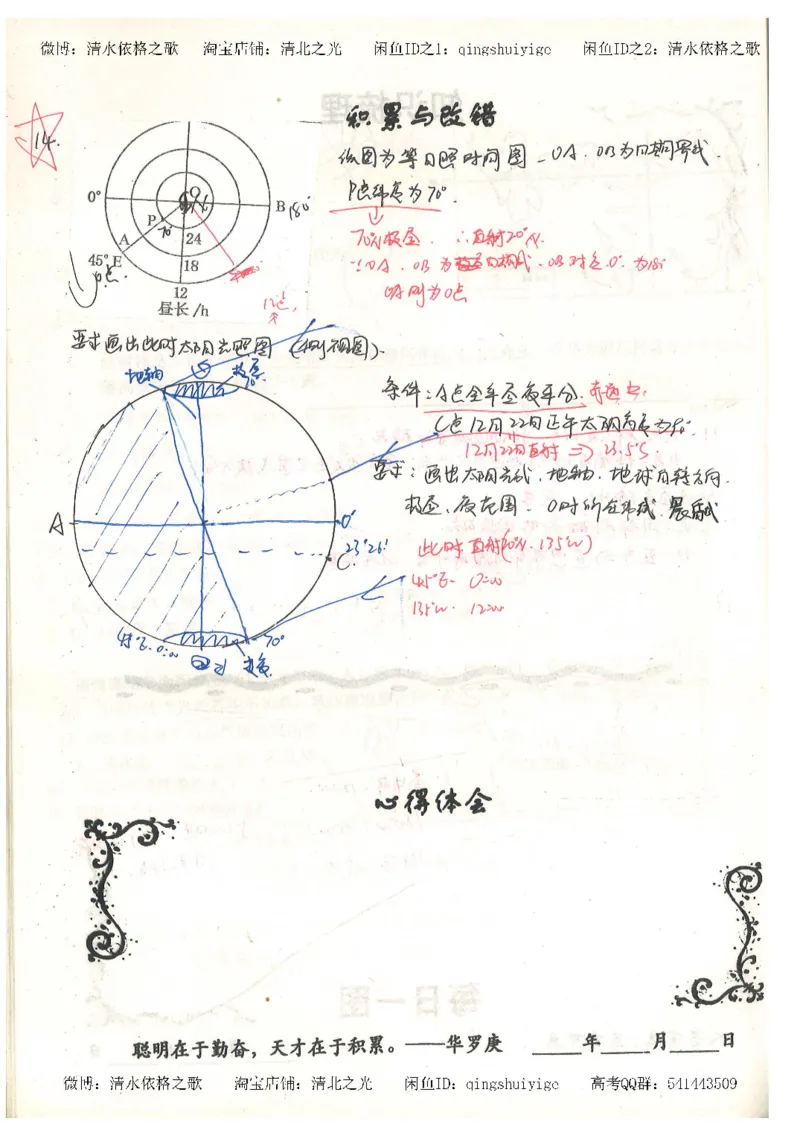 微博：清水依格之歌 淘宝店铺：清北之光 闲鱼ID之1：qingshuiyige 闲鱼ID之2：清水依格之歌
积累与改错
14.
纵图为等日照时间图 OA、OB为日期界线
P点纬度为70°
0°
O
B 180°
P
70°
A
24
45°E
0点
18
12
昼长/h
12点
70°N极昼 ∴直射20°N
∵OA、OB为日期界线、OB对仓0°为180°
OA则为0点
要求画出此时太阳光照图（侧视图）
地轴
极昼
70°
条件：A点全年昼夜平分 赤道上
C点12月22日正午太阳高度为90°
12月22日直射 ⇒ 23.5°S
要求：画出太阳光线、地轴、地球自转方向
极昼、夜范围、0时所在经线、晨昏线
A
0°
23°26′
C
此时直射(20°N, 135°W)
45°E 0:00
135°W 12:00
45°E 0:00
70°
极夜
心得体会
聪明在于勤奋，天才在于积累。——华罗庚 年 月 日
微博：清水依格之歌 淘宝店铺：清北之光 闲鱼ID：qingshuiyige 高考QQ群：541443509